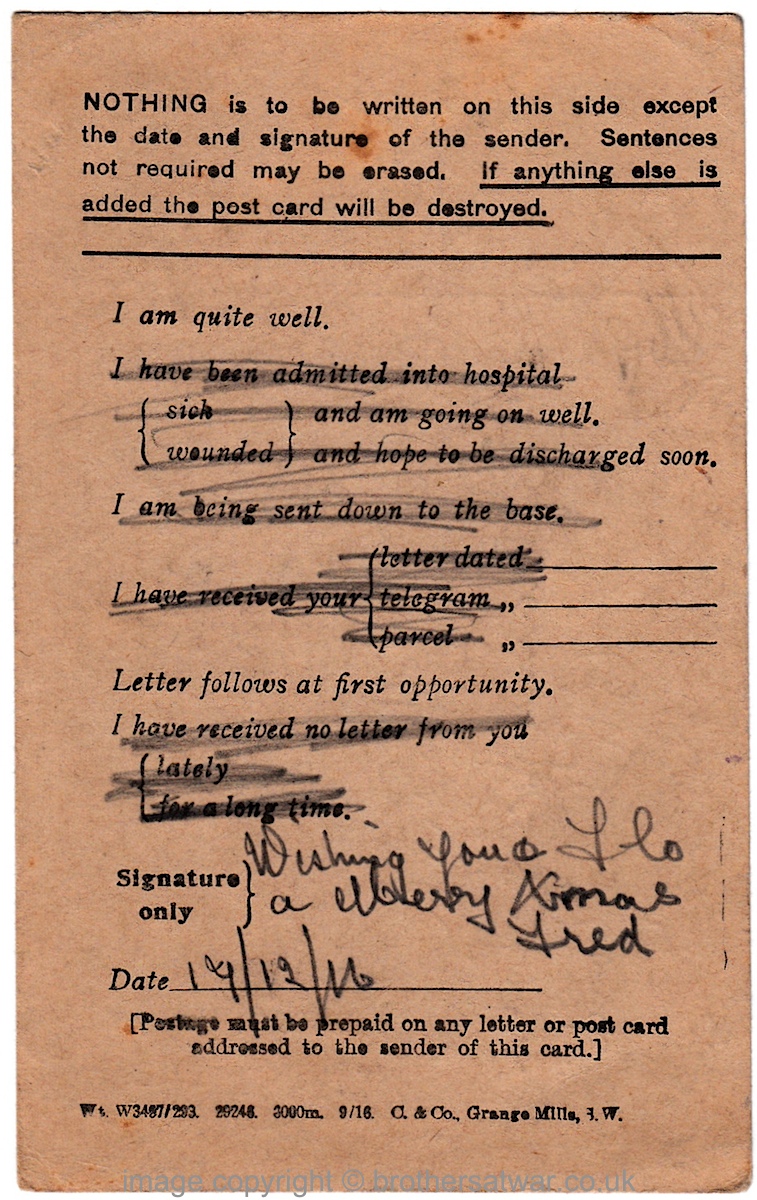 NOTHING is to be written on this side except
the date and signature of the sender. Sentences
not required may be erased. If anything else is
added the post card will be destroyed.
I am quite well.
I have been admitted into hospital
{ sick } and am going on well.
{ wounded } and hope to be discharged soon.
I am being sent down to the base.
{ letter dated
I have received your { telegram „
{ parcel „
Letter follows at first opportunity.
I have received no letter from you
{ lately
{ for a long time.
Wishing you & Flo
Signature } a Merry Xmas
only
Fred
Date 17/12/16
[Postage must be prepaid on any letter or post card
addressed to the sender of this card.]
Wt. W3497/293. 29248. 3000m. 9/16. C. & Co., Grange Mills, S.W.
image copyright © brothersatwar.co.uk